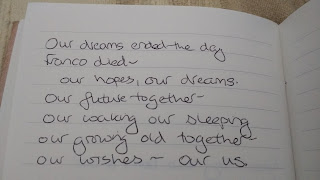 Our dreams ended the day
Franco died ~
our hopes, our dreams.
Our future together ~
our waking our sleeping
our growing old together ~
our wishes ~ our us